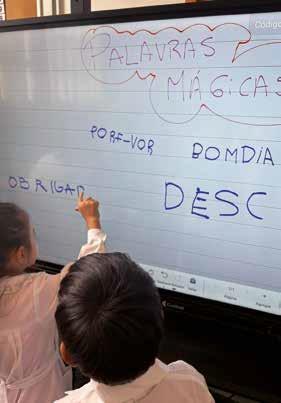 Código
PALAVRAS
MÁGICAS
PORF-VOR BOMDIA
OBRIGAD DESC
1/1
Página